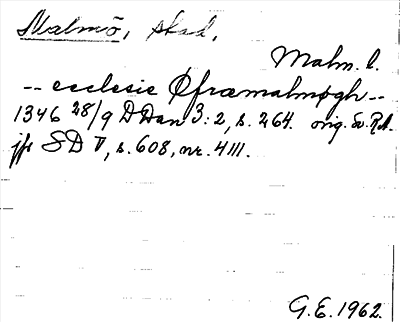 Malmö, stad,
Malm. l.
-- ecclesie Øfræmalmøgh --
1346 28/9 DDan 3:2, s. 264. orig. Sv. RA.
jfr SD V, s. 608, nr. 4111.
G.E. 1962.